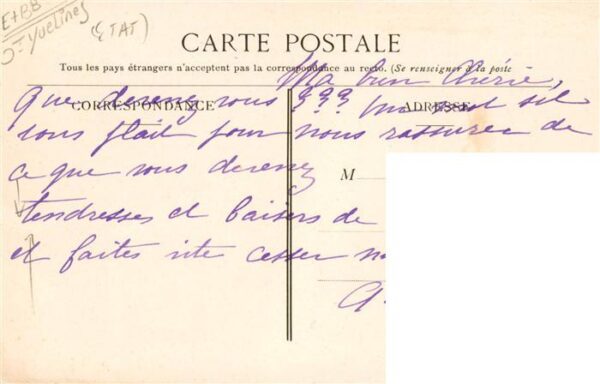 E+BB
St Yvelines
(ETAT)
CARTE POSTALE
Tous les pays étrangers n'acceptent pas la correspondance au recto. (Se renseigner à la poste
CORRESPONDANCE
ADRESSE
Ma bien chérie,
que devenez vous ??? un mot sil
vous plait pour nous rassurer de
ce que vous devenez
M
tendresses et baisers de
et faites vite cesser n